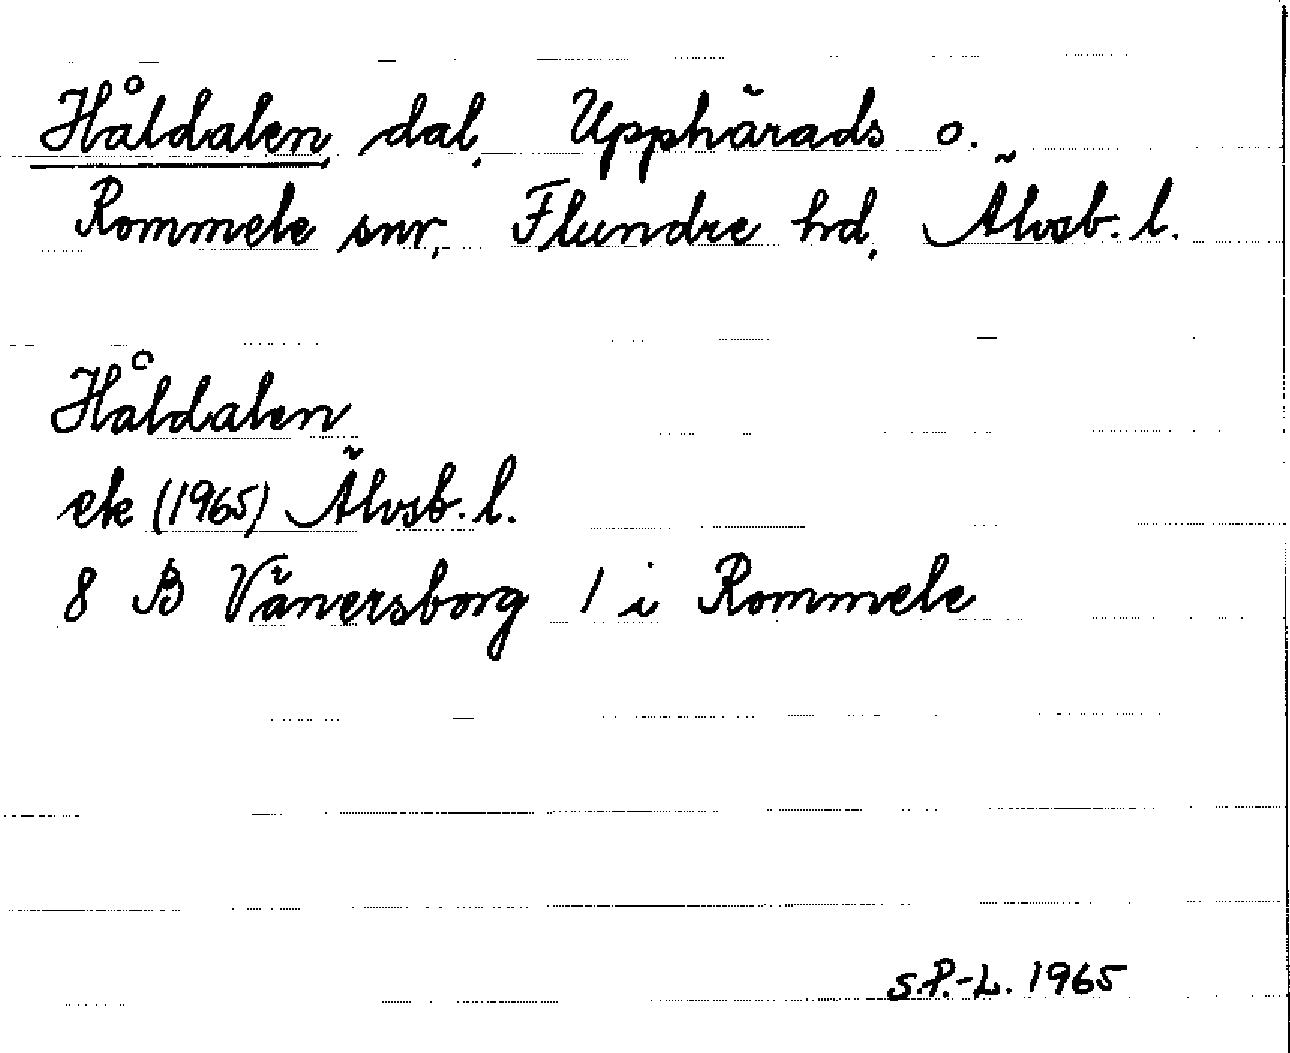 Håldalen, dal, Upphärads o.
Rommele snr, Flundre hd, Älvsb. l.
Håldalen
ek (1965) Älvsb. l.
8 B Vänersborg 1 i Rommele
S.P.-L. 1965